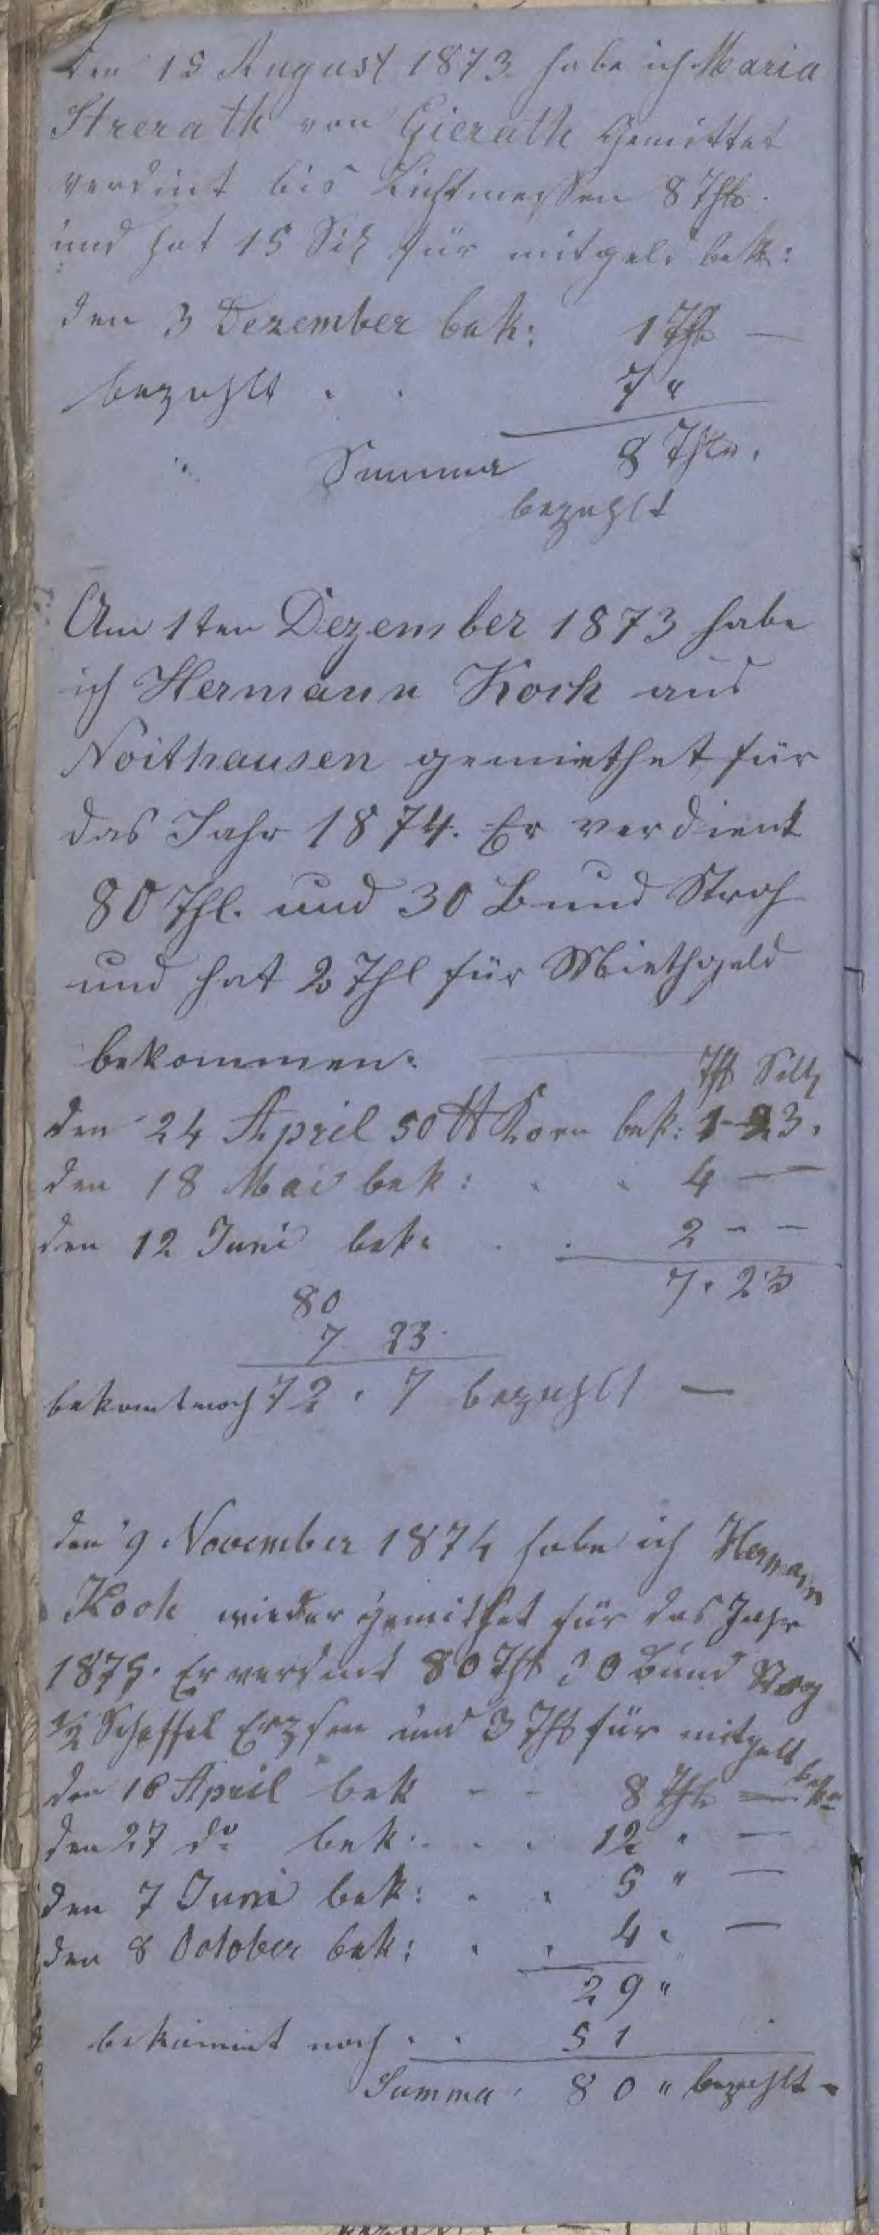 den 15 August 1873 habe ich Maria
Strerath von Gierath Gemittet
verdint bis Lichtmessen 8 Thlr.
und hat 15 Silg für mitgeld bek:
den 3 Dezember bek: 1 Thlr —
bezahlt . . 7 "
Summa 8 Thlr.
bezahlt
Am 1ten Dezember 1873 habe
ich Hermann Koch aus
Noithausen gemiethet für
das Jahr 1874. Er verdient
80 Thl. und 30 Bund Stroh
und hat 2 Thl für Miethgeld
bekommen.
Thl Silg
den 24 April 50 ℔ Korn bek: 1-23.
den 18 Mai bek: . . 4 — —
den 12 Juni bek: . . 2 - -
7. 23
80
7 23
bekomt noch 72. 7 bezahlt —
den 9 November 1874 habe ich Hermann
Koch wieder gemithet für das Jahr
1875. Er verdint 80 Thl 30 Bund Stroh
1/2 Scheffel Erzsen und 3 Thl für mitgelt
bek:
den 16 April bek - - 8 Thlr —
den 27 do bek: . . 12 " —
den 7 Juni bek: . . 5 " —
den 8 October bek: . . 4 " —
29 "
bekümmt noch . . 51
Summa . 80 " bezahlt -